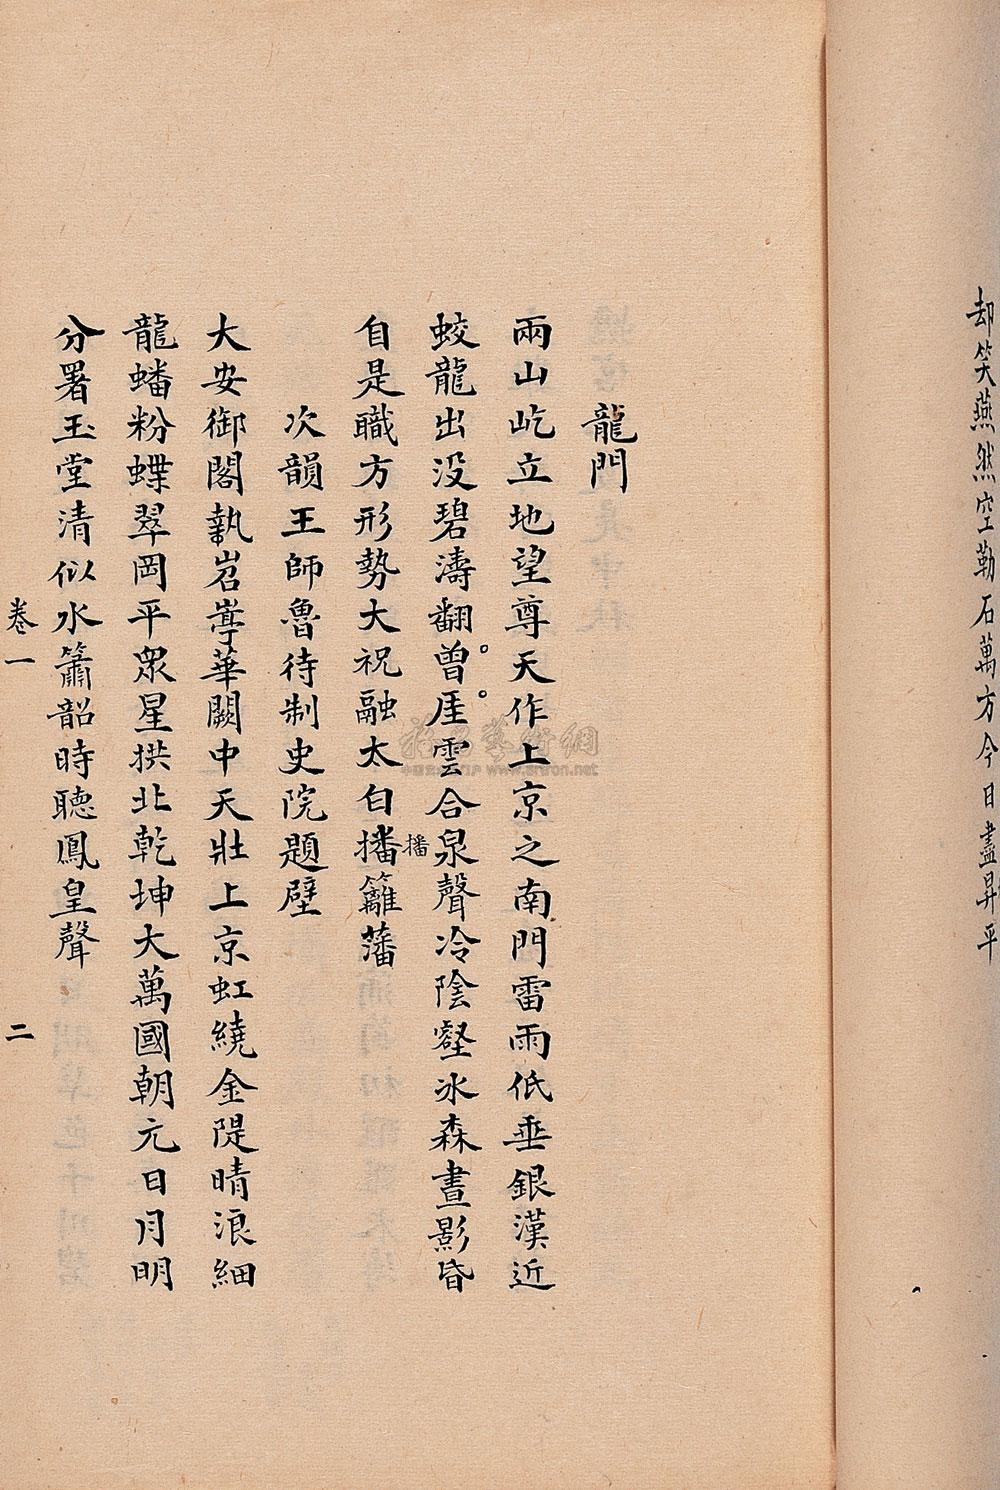 却笑燕然空勒石萬方今日盡昇平
龍門
兩山屹立地望尊天作上京之南門雷雨低垂銀漢近
蛟龍出没碧濤翻曾厓雲合泉聲冷陰壑冰森晝影昏
自是職方形勢大祝融太白播籬藩
播
次韻王師魯待制史院題壁
大安御閣執岧嵉華闕中天壯上京虹繞金隄晴浪細
龍蟠粉蝶翠岡平衆星拱北乾坤大萬國朝元日月明
分署玉堂清似水簫韶時聽鳳皇聲
卷一
二